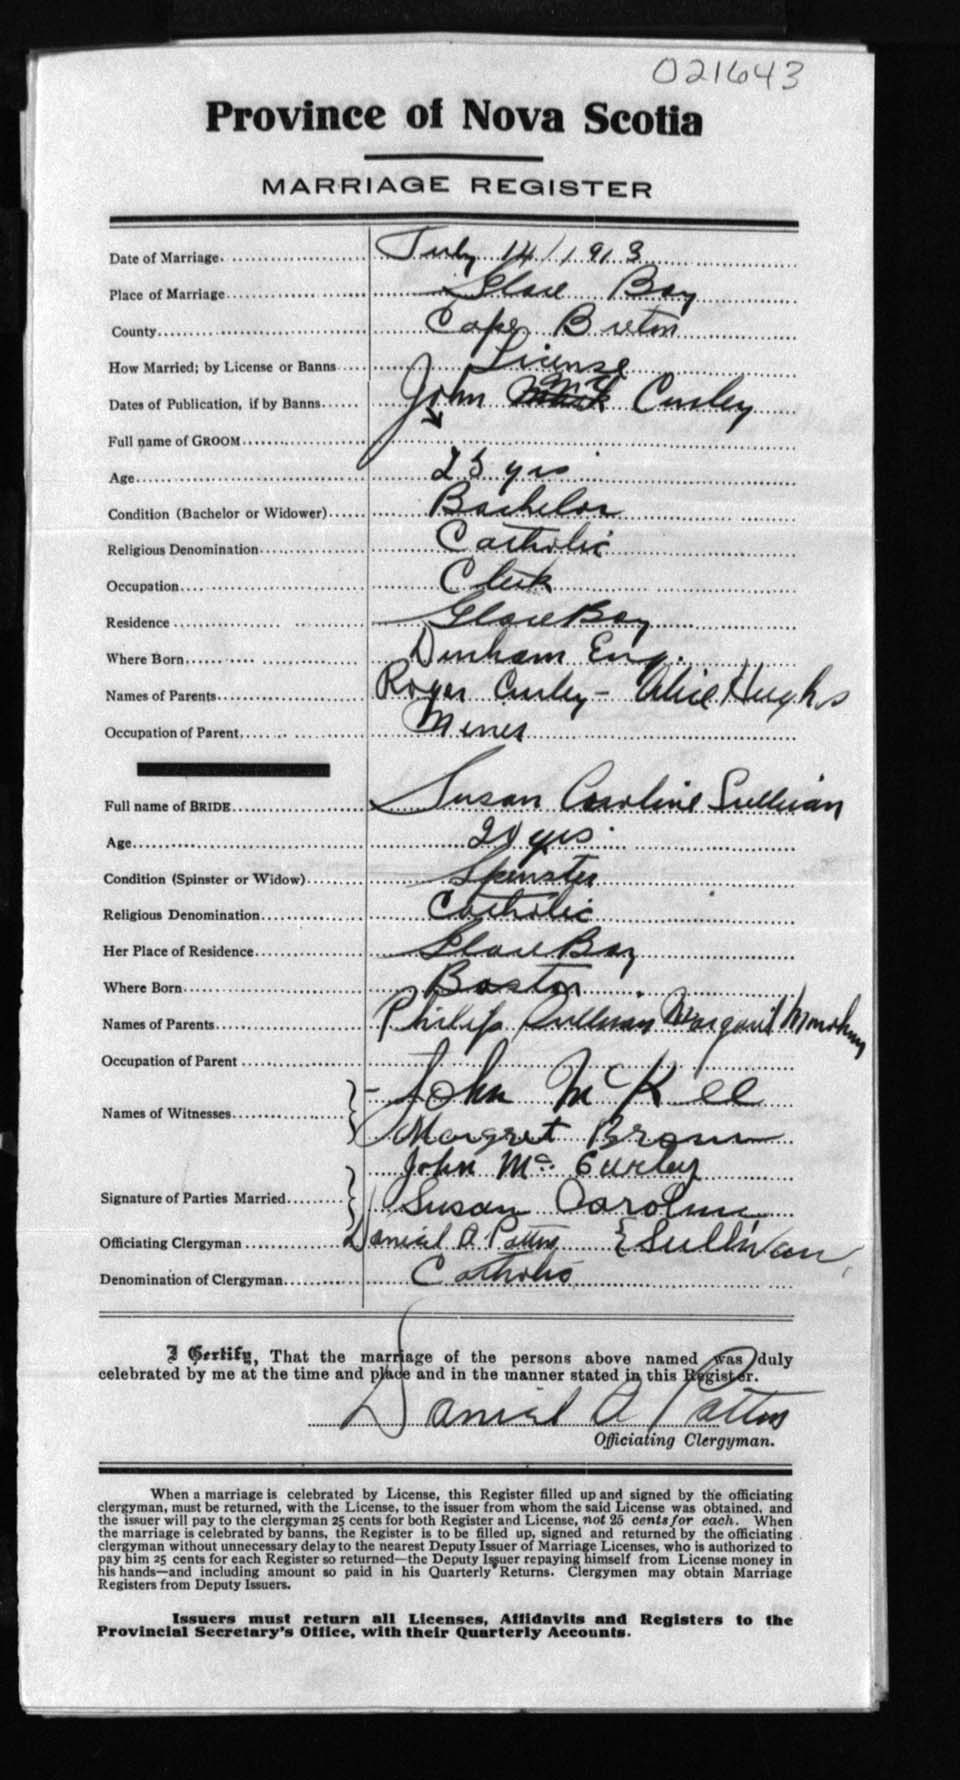 021643
Province of Nova Scotia
MARRIAGE REGISTER
Date of Marriage July 14/1913
Place of Marriage Glace Bay
County Cape Breton
How Married; by License or Banns License
Dates of Publication, if by Banns John Mc Curley
Full name of GROOM
Age 25 yrs
Condition (Bachelor or Widower) Bachelor
Religious Denomination Catholic
Occupation Clerk
Residence Glace Bay
Where Born Durham Eng.
Names of Parents Roger Curley - Alice Hughs
Occupation of Parent Miner
Full name of BRIDE Susan Caroline Sullivan
Age 20 yrs.
Condition (Spinster or Widow) Spinster
Religious Denomination Catholic
Her Place of Residence Glace Bay
Where Born Boston
Names of Parents Philip Sullivan Margaret
Occupation of Parent
John McKee
Names of Witnesses
Margret Brown
John Mc. Curley
Signature of Parties Married
Susan Caroline
Officiating Clergyman Daniel A Patton { Sullivan
Denomination of Clergyman Catholic
I Certify, That the marriage of the persons above named was duly
celebrated by me at the time and place and in the manner stated in this Register.
Daniel A Patton
Officiating Clergyman.
When a marriage is celebrated by License, this Register filled up and signed by the officiating
clergyman, must be returned, with the License, to the issuer from whom the said License was obtained, and
the issuer will pay to the clergyman 25 cents for both Register and License, not 25 cents for each. When
the marriage is celebrated by banns, the Register is to be filled up, signed and returned by the officiating
clergyman without unnecessary delay to the nearest Deputy Issuer of Marriage Licenses, who is authorized to
pay him 25 cents for each Register so returned—the Deputy Issuer repaying himself from License money in
his hands—and including amount so paid in his Quarterly Returns. Clergymen may obtain Marriage
Registers from Deputy Issuers.
Issuers must return all Licenses, Affidavits and Registers to the
Provincial Secretary's Office, with their Quarterly Accounts.